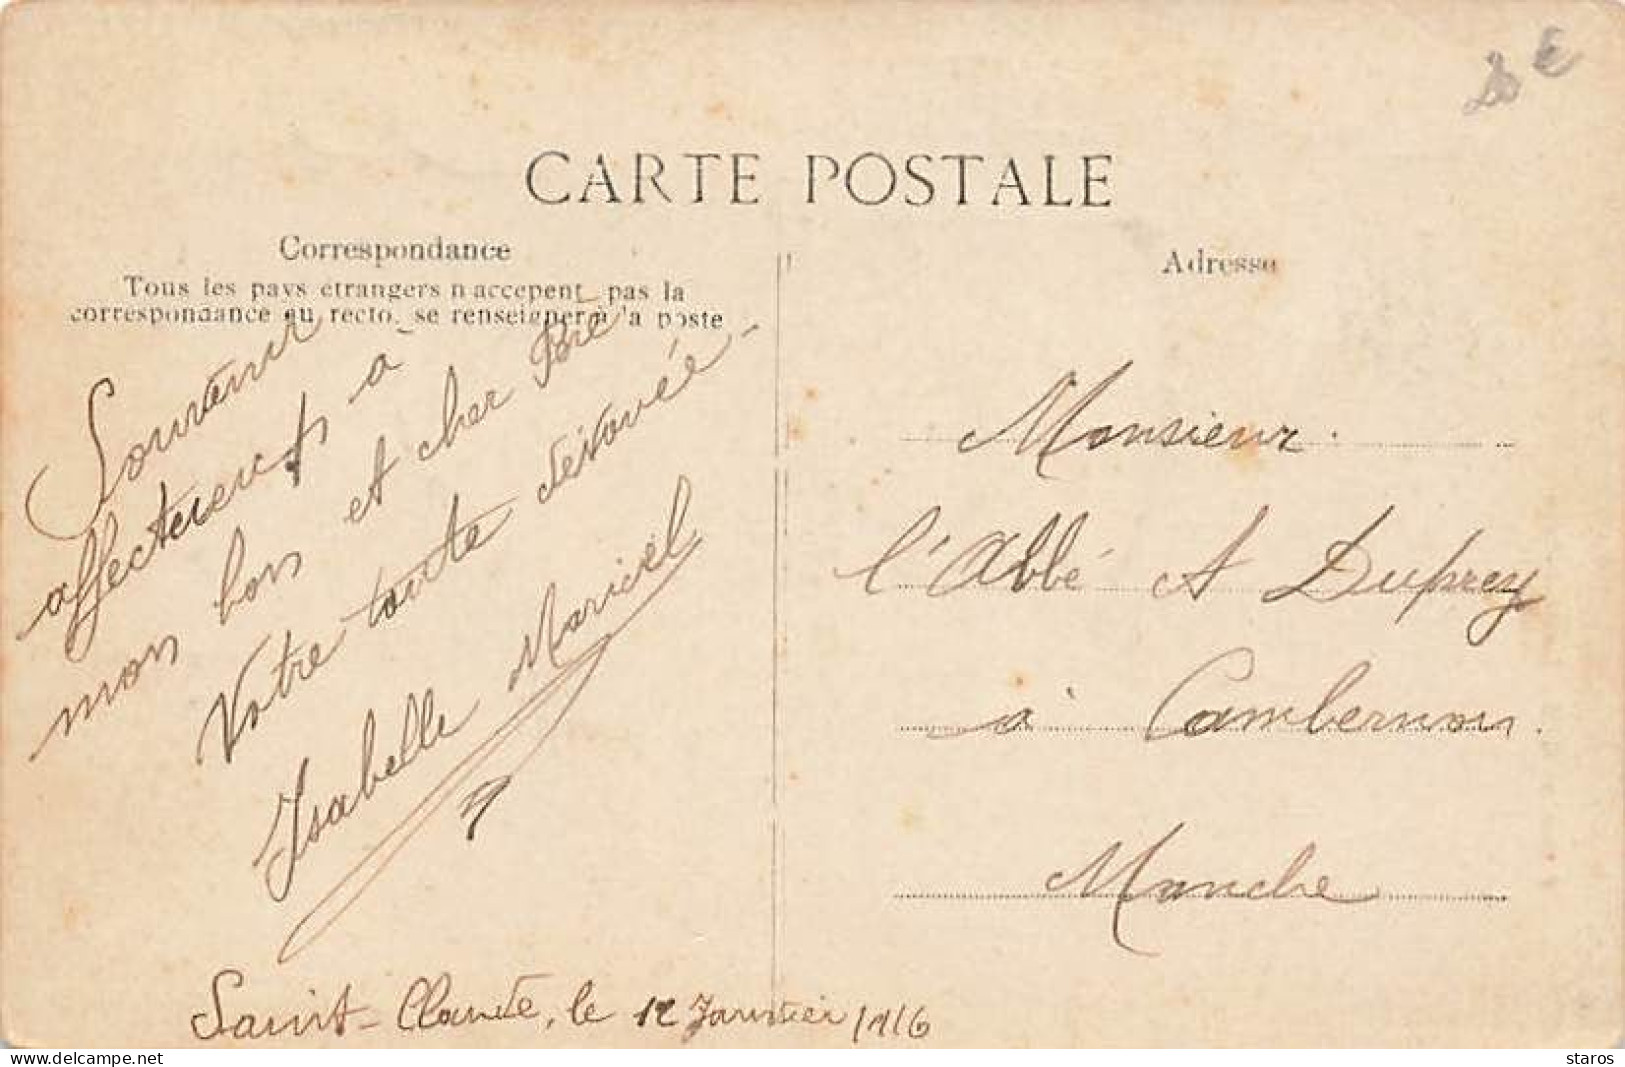 CARTE POSTALE
Correspondance
Tous les pays étrangers n'accepent pas la
correspondance au recto, se renseigner à la poste
Adresse
Souvenir
affectueux à
mon bon et cher Père
Votre toute dévouée -
Isabelle Mariel
Monsieur
l'Abbé A Duprey
à Cambernon.
Manche
Saint-Claude, le 12 Janvier 1916
delcampe.net
staros